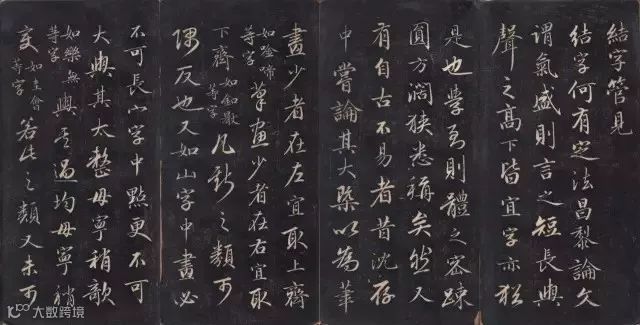 結字管見
結字何有定法昌黎論文
謂氣盛則言之短長與
聲之高下皆宜字亦猶
是也學則體之密踈
圓方濶狹悉稱矣然又
有自古不易者昔沈存
中嘗論其大槩以為筆
畫少者在左宜取上齊
如唫啼等字筆畫少者在右宜取
下齊如釦等字凡斯之類可
隅反也又如山字中畫必
不可長小字中點更不可
大與其太整毋寧稍欹
如樂無等字與其過均毋寧稍
變如圭會等字若此之類又未可
大数跨境